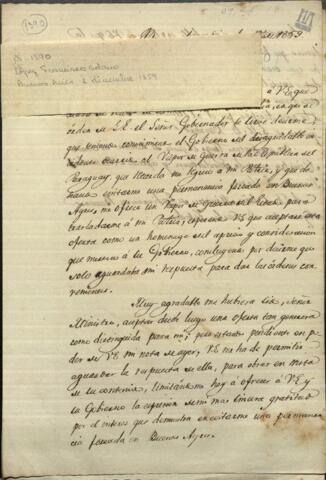 1390
III
N. 1390
López Francisco Solano
Buenos Aires 2 diciembre 1859
1859.
a VE que
órden de S.E. el Señor Gobernador
que teniendo conocimiento el Gobierno del desagradable
al Vapor de Guerra de la República del
Paraguay, que llevaba mi regreso a mi Patria, y que de
evitarme una permanencia forzada en Buenos
Ayres, me ofrece un Vapor de Guerra del
trasladarme á mi Patria, VE que aceptase esta
oferta como un homenage del aprecio y consideracion
que merezco á su Gobierno, concluyendo por decirme que
solo aguardaba mi respuesta para dar las órdenes con-
venientes.
Muy agradable me hubiera sido, Señor
Ministro, aceptar desde luego una oferta tan generosa
como distinguida para mi; pero estando pendiente en po-
der de VE mi nota de ayer, VE me ha de permitir
aguardar la respuesta de ella, para obrar en vista
de su contenido, limitandome hoy á ofrecer á VE y
su Gobierno la espresion de mi mas sincera gratitud
por el interes que demuestra en evitarme una permanen-
cia forzada en Buenos Ayres.